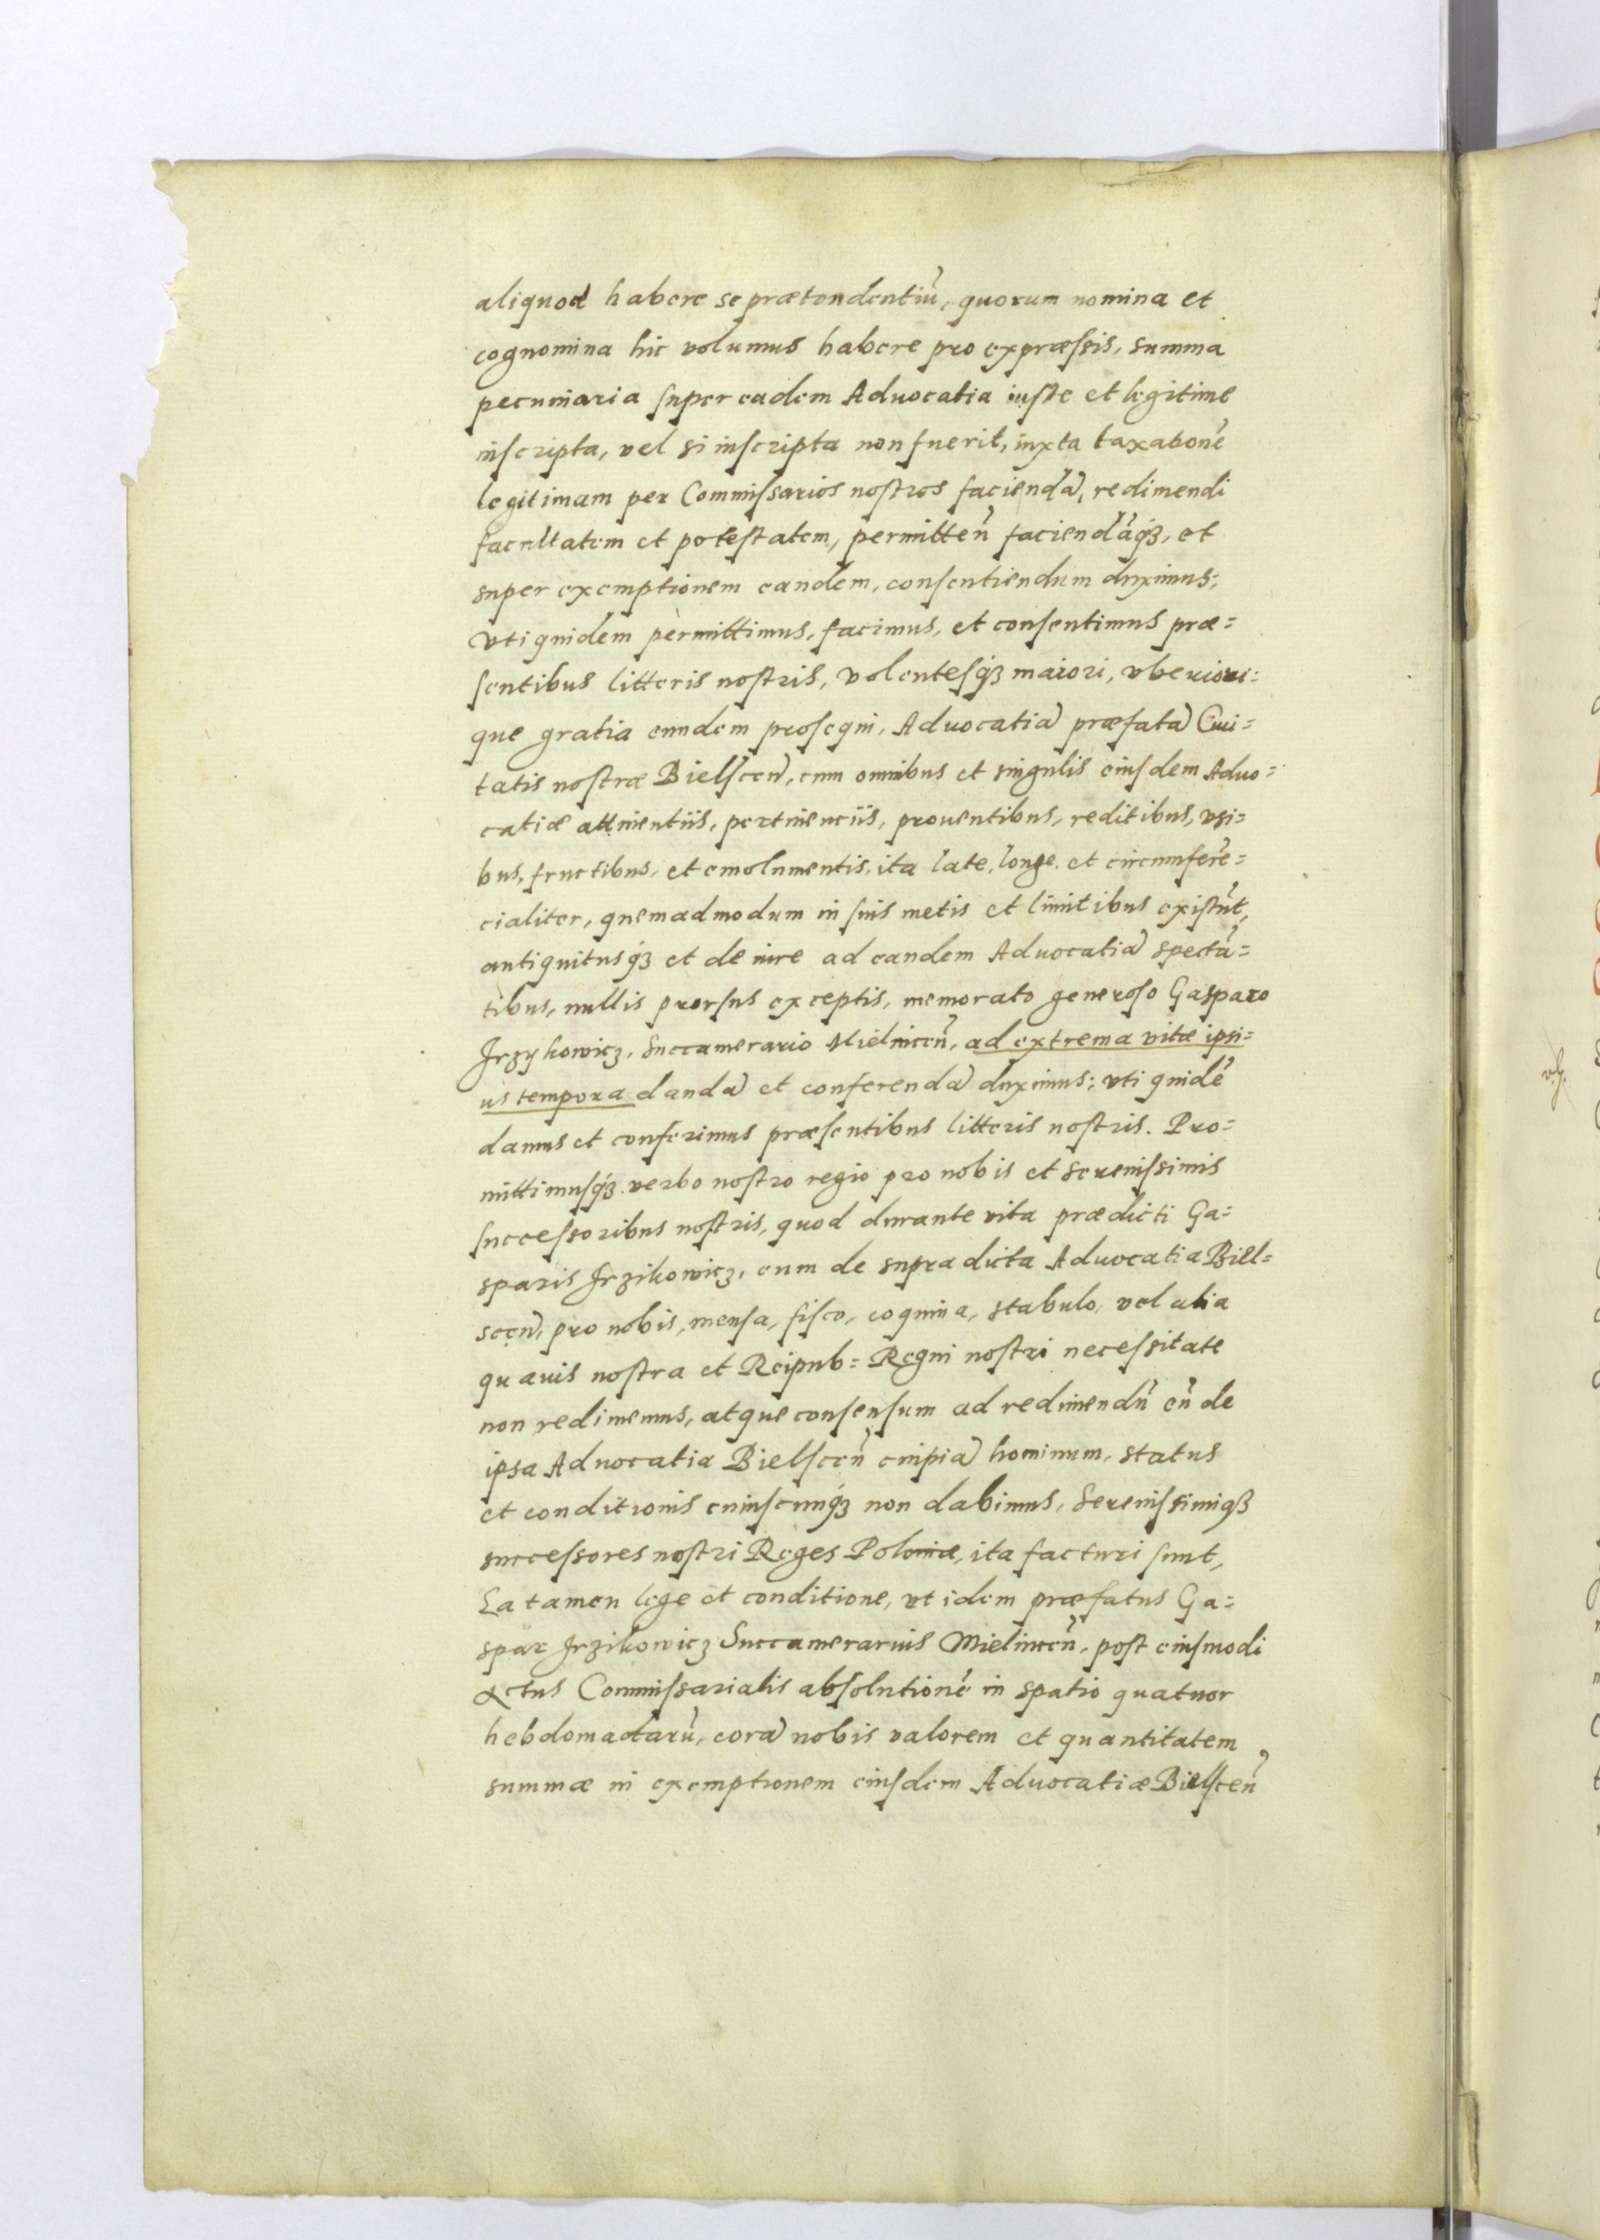 aliquod habere se prætendentiũ, quorum nomina et
cognomina hic volumus habere pro expræssis, summa
pecuniaria super eadem Advocatia iuste et legitime
inscripta, vel si inscripta non fuerit, iuxta taxationẽ
legitimam per Commissarios nostros faciendã, redimendi
facultatem et potestatem, permitteñ faciendãq₃, et
super exemptionem eandem, consentiendum duximus;
Vti quidem permittimus, facimus, et consentimus præ=
sentibus litteris nostris, Volentesq₃ maiori, vberiori=
que gratia eundem prosequi, Advocatiã præfatã Ciui=
tatis nostræ Bielsceñ, cum omnibus et singulis eiusdem Aduo=
catiæ attinentiis, pertinenciis, prouentibus, reditibus, vsi=
bus, fructibus, et emolumentis, ita late, longe, et circumferẽ=
cialiter, quemadmodum in suis metis et limitibus existũt,
antiquitusq₃ et de iure ad eandem Advocatiã spectã=
tibus, nullis prorsus exceptis, memorato generoso Gasparo
Jrzykowicz, Succamerario Mielniceñ, ad extrema vitæ ipsi=
us tempora dandã et conferendã duximus; vti quidẽ
damus et conferimus præsentibus litteris nostris. Pro=
mittimusq₃ verbo nostro regio pro nobis et Serenissimis
successoribus nostris, quod durante vita prædicti Ga=
sparis Jrzikowicz, eum de supradicta Advocatia Biel=
sceñ, pro nobis, mensa, fisco, coquina, stabulo, vel alia
quauis nostra et Reipub= Regni nostri necessitate
non redimemus, atque consensum ad redimendũ eũ de
ipsa Advocatia Bielsceñ cuipiã hominum, status
et conditionis cuiuscunq₃ non dabimus, Serenissimiq₃
successores nostri Reges Poloniæ, ita facturi sunt,
Ea tamen lege et conditione, vt idem præfatus Ga=
spar Jrzikowicz Succamerarius Mielniceñ, post eiusmodi
Actus Commissarialis absolutionẽ in spatio quatuor
hebdomadarũ, corã nobis valorem et quantitatem
summæ in exemptionem eiusdem Advocatiæ Bielsceñ